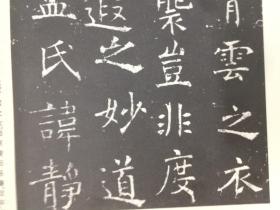 青雲之衣
豈非度
遐之妙道
孟氏諱靜